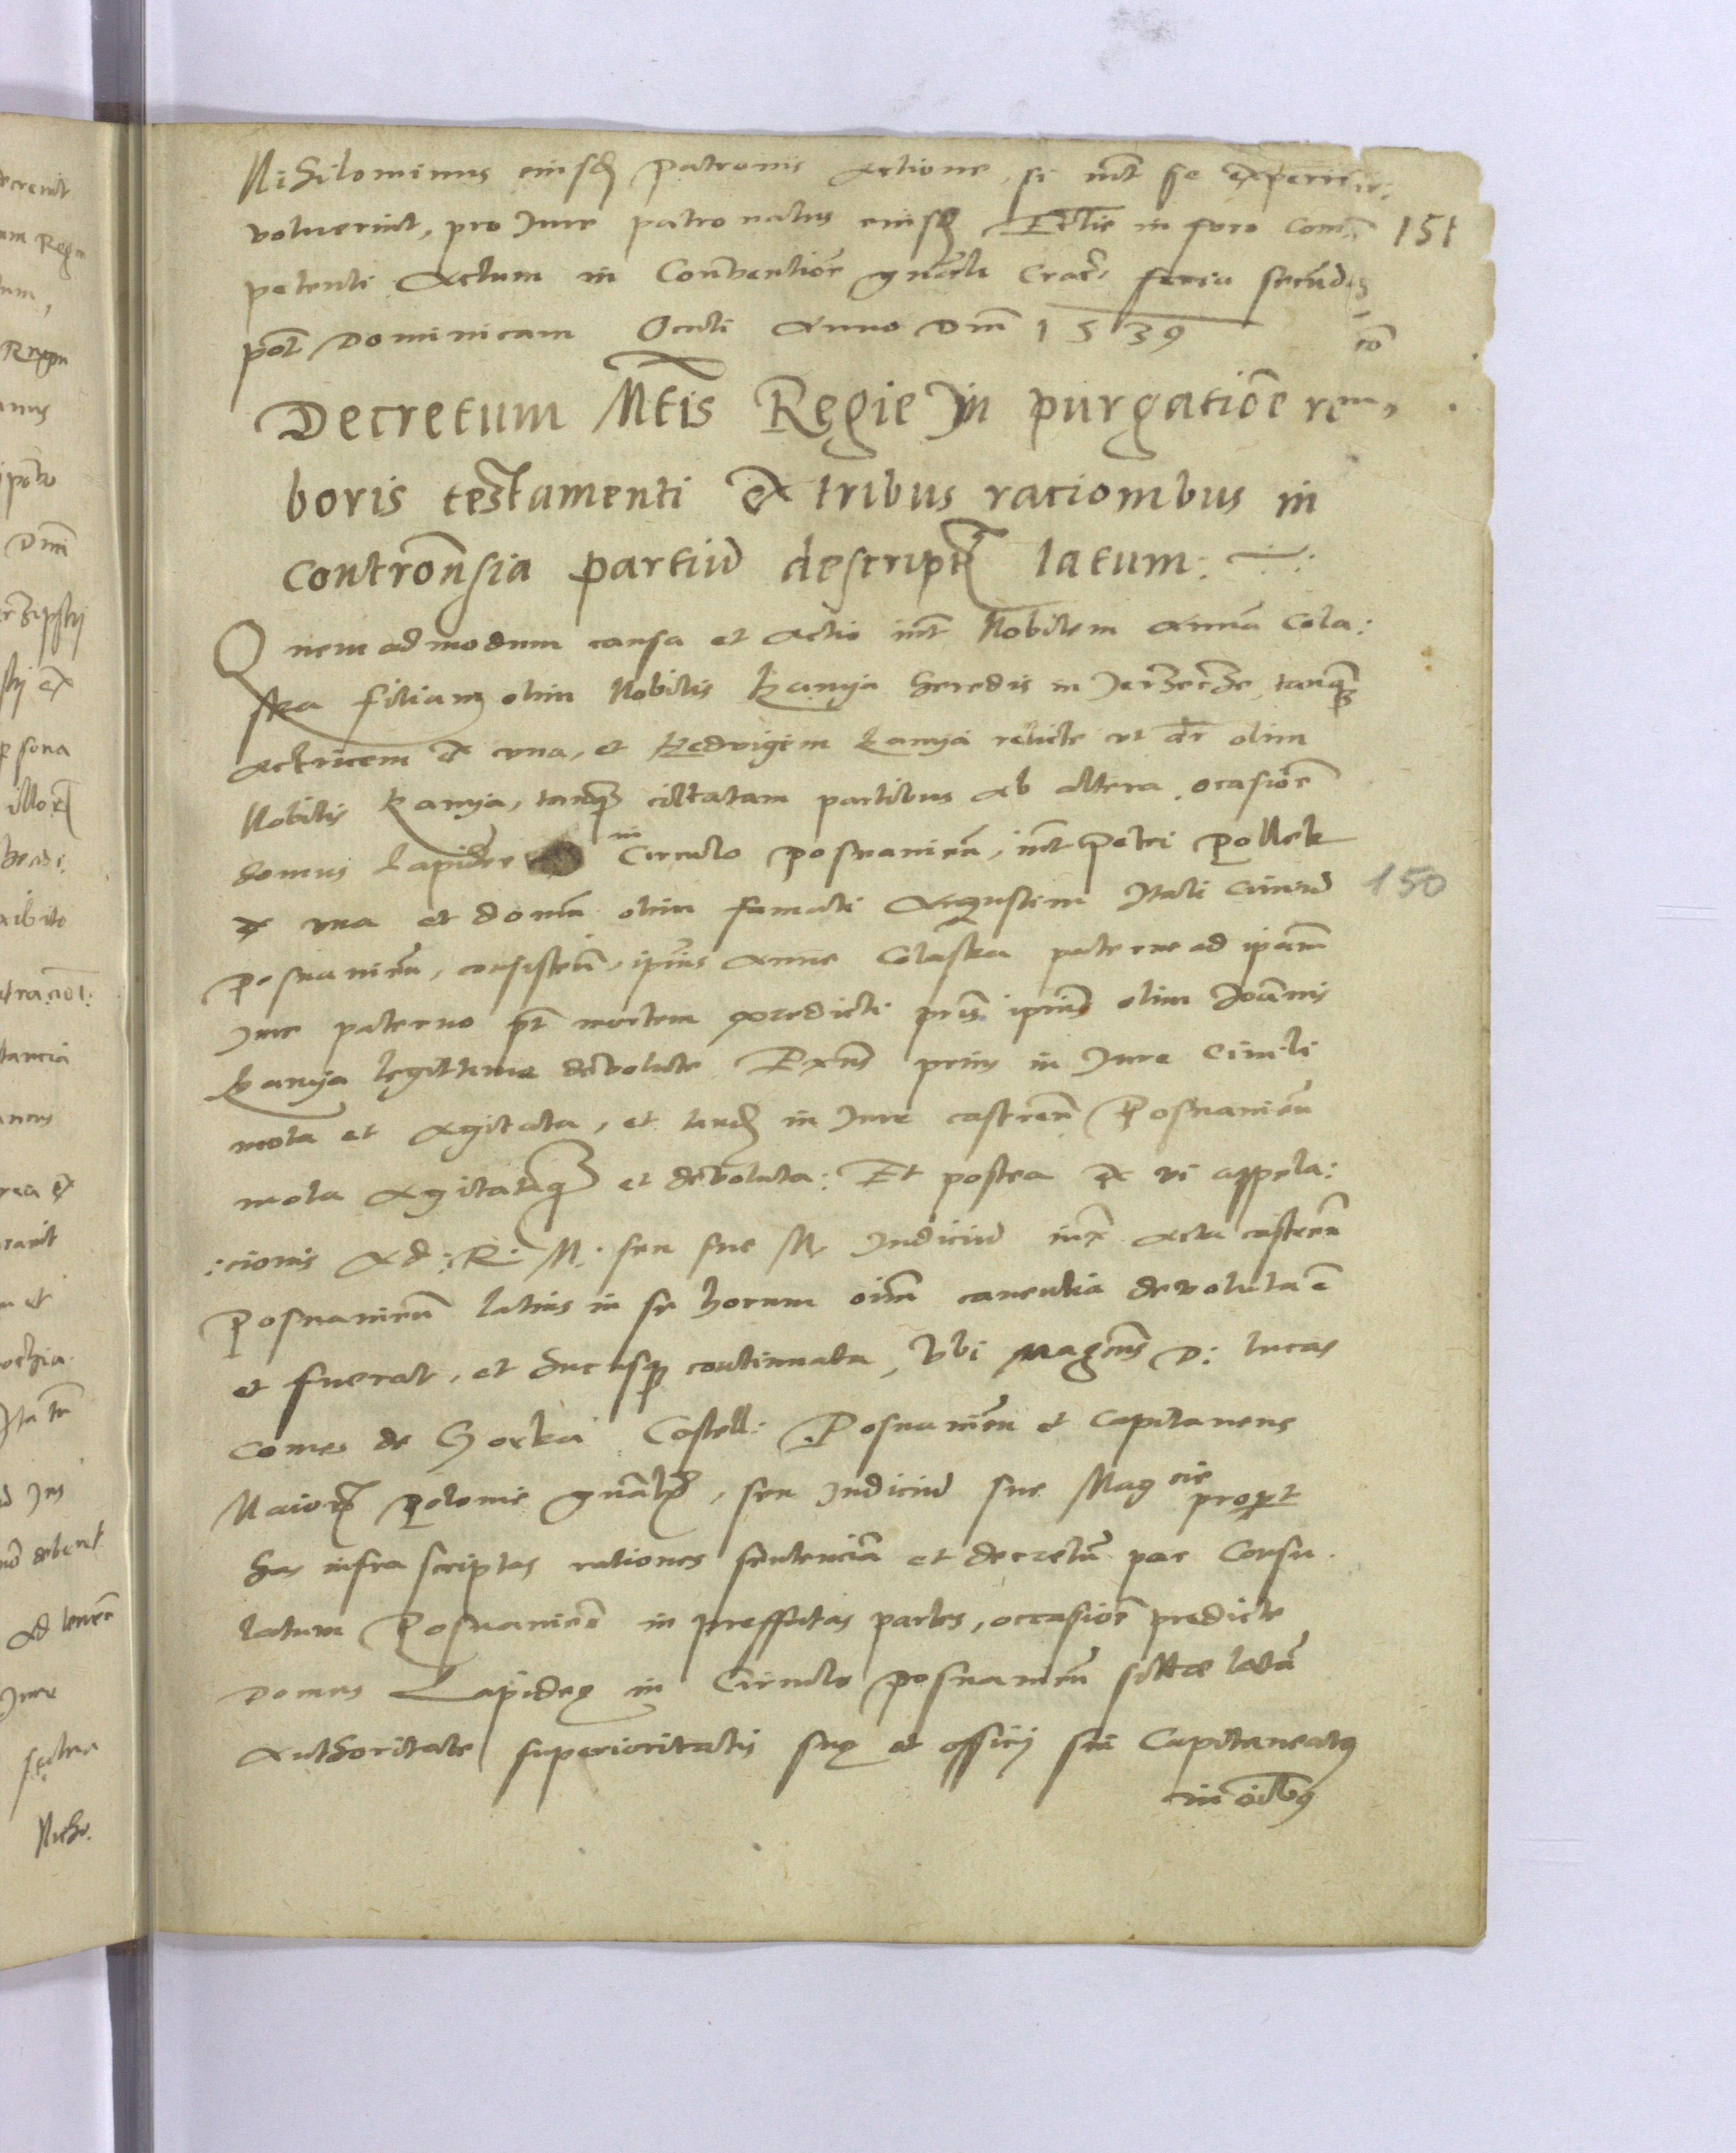 Nihilominus eiusd patronis Actione, si int se experir:
voluerint, pro Iure patronatus eiusd Ecclie in foro Com 151
petenti Actum in Conventioe gnali Crac feria secunda
post Dominicam Oculi Anno Dni 1539
Decretum Mtis Regie In purgatioe ro
boris testamenti ex tribus racionibus in
controusia partiu descript latum:
Quemadmodum causa et Actio int Nobilem Anna Cola:
ska filiam olim Nobilis kanya heredis in tanq
Actricem ex vna, et Hedvigem kanya relicte vt olim
Nobilis kanya, tanq cittatam partibus ab altera, ocasioe
domus lapidee in Circulo posnanien, int Petri Pollek
ex vna et domu olim famati Augustini Itali Civiu 150
Posnanien, consisten, ipius Anne Colaska paterne ad ipam
Iure paterno pt mortem predicti pris ipius olim Joannis
kanya legittime devolute prius in Iure Civili
mota et Agitata, et tand in Iure castren Posnanien
mota Agitataq et devoluta: Et postea ex vi appela:
:cionis Ad: R: M. seu sue M Iudiciu iux Acta castren
Posnanien latius in se horum oim canentia devoluta
et fuerat, et hucusq continuata, Vbi Magcus D: lucas
Comes de Gorka Castell: Posnanien et Capitaneus
Maioris polonie gnalis, seu Iudiciu sue Magcie propt
has infra scriptas rationes sentencia et decretu per Consu
latum Posnanien in preffatas partes, occasioe predicte
Domus Lapideę in Circulo Posnanien sittæ lata
Authoritate superioritatis suę et officij sui Capitaneatus
in oibus